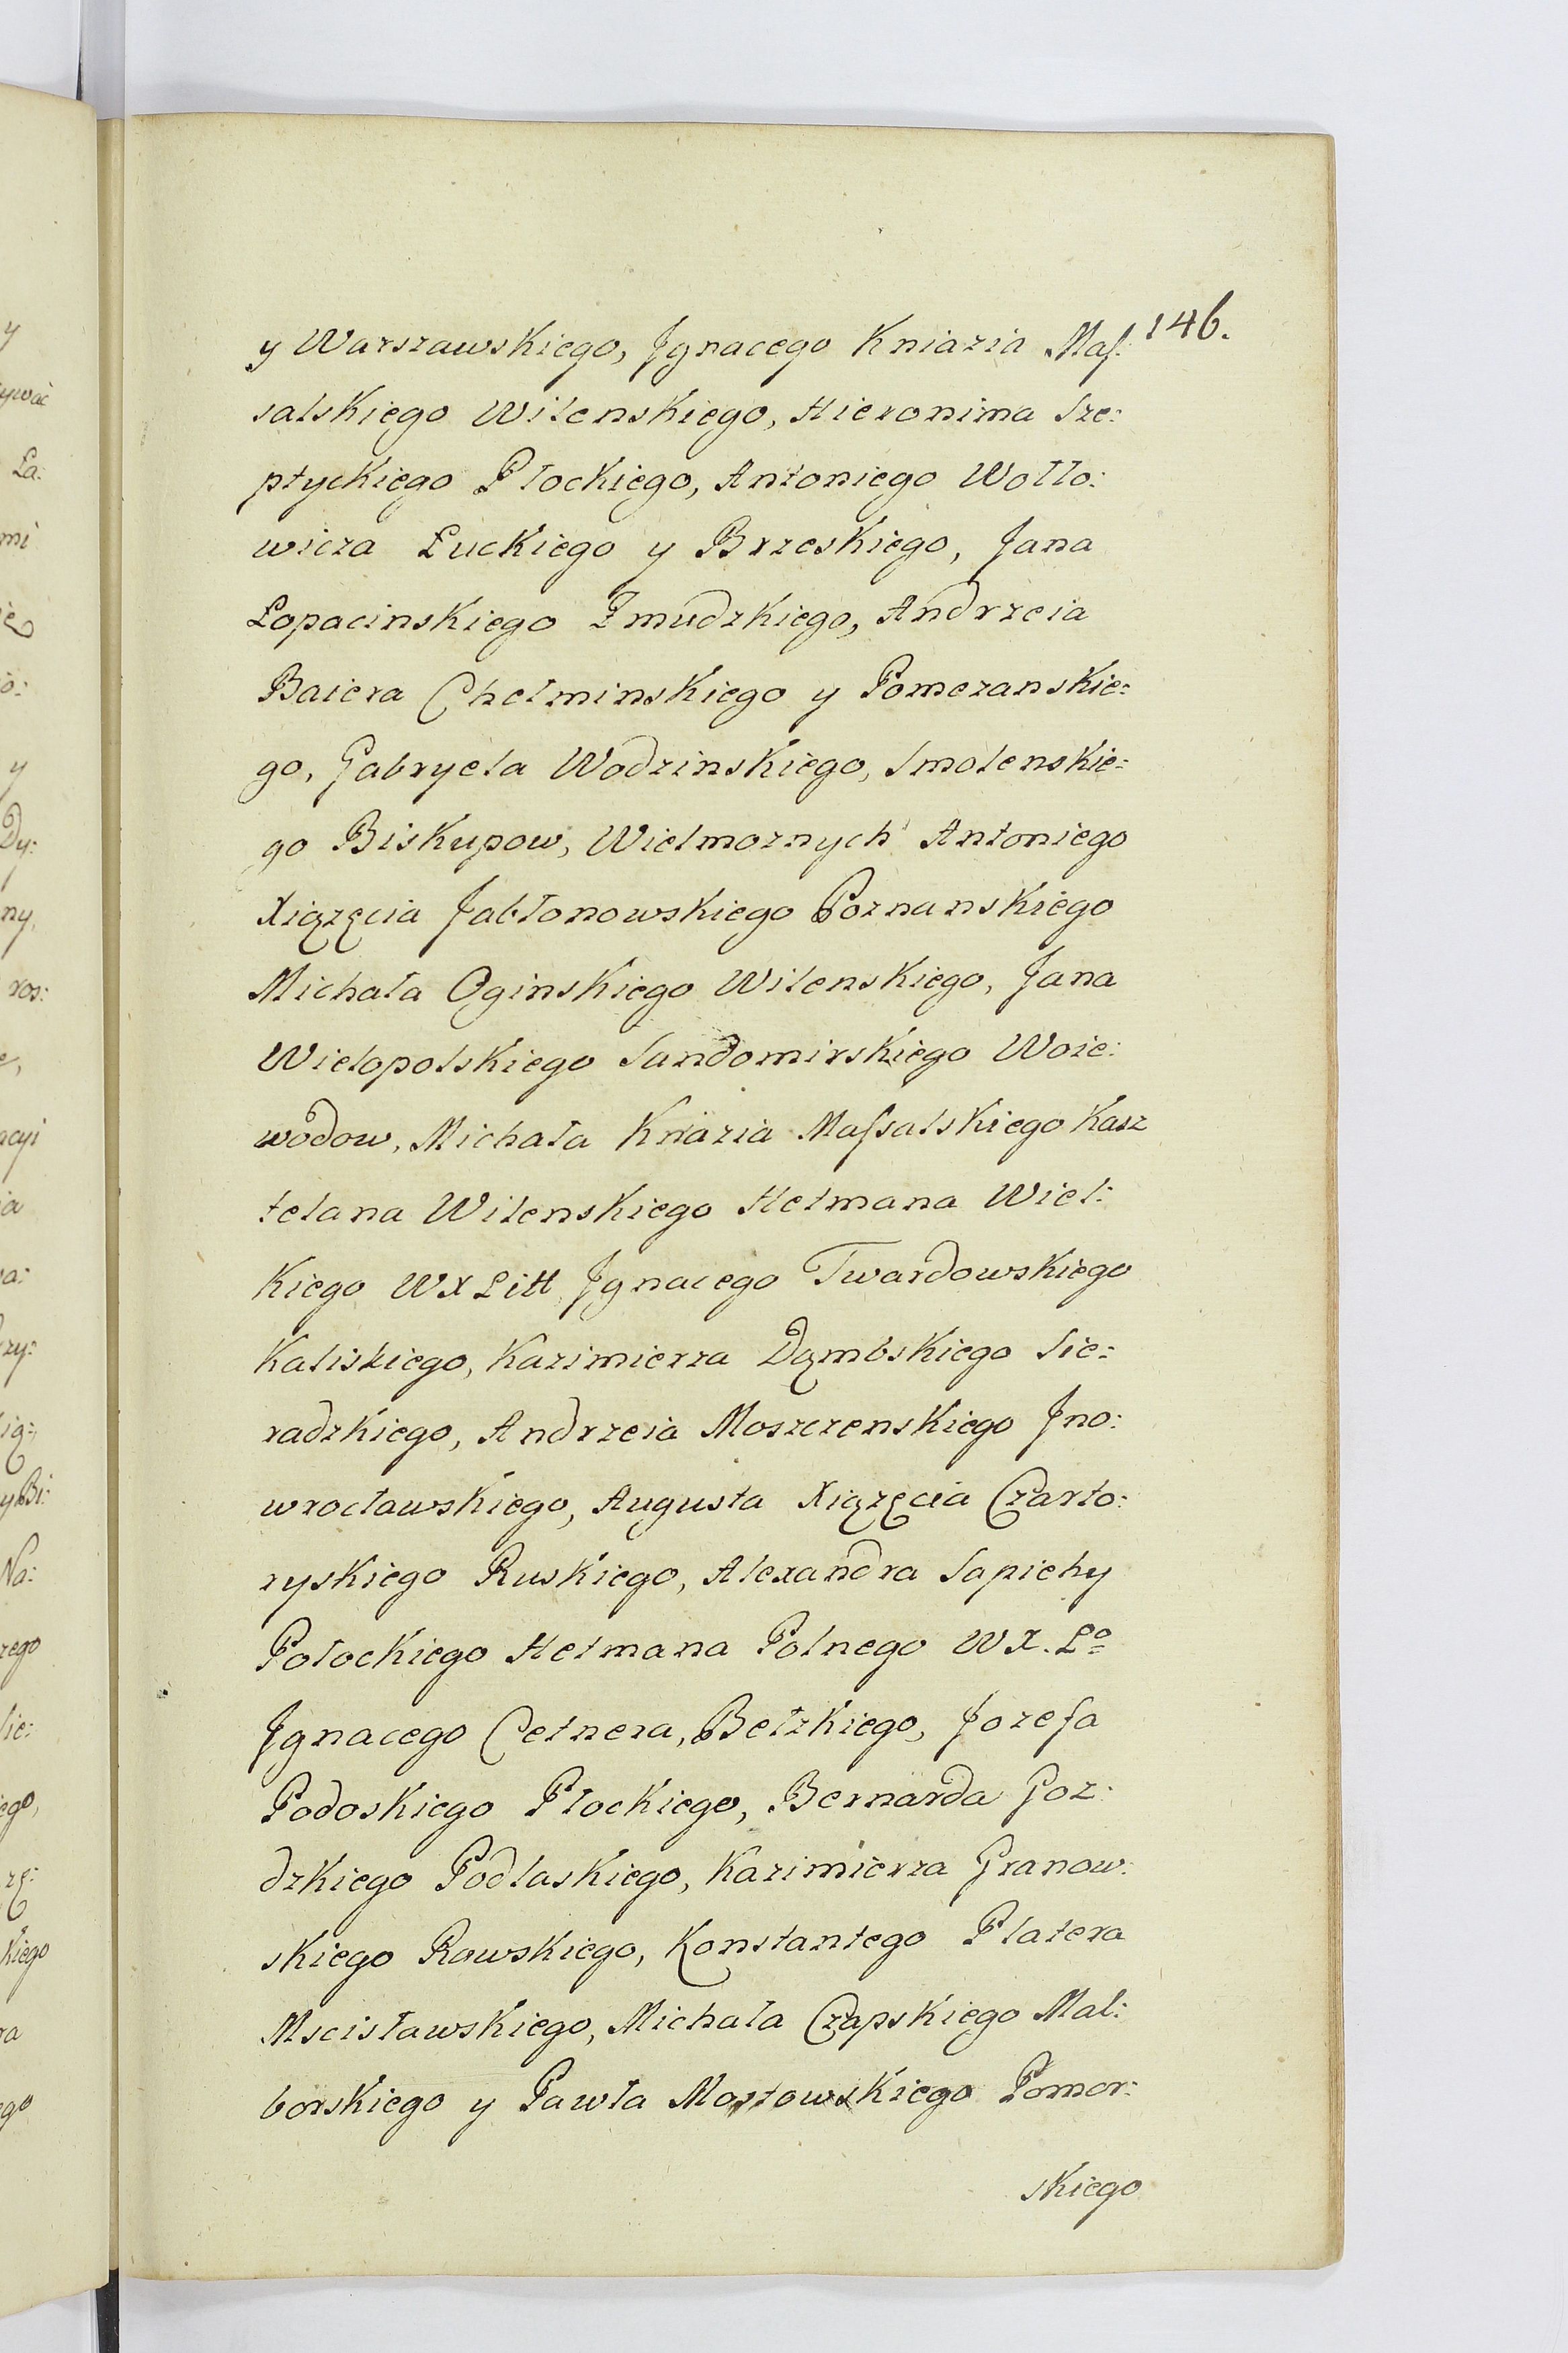 146.
y Warszawskiego, Jgnacego Kniazia Maſ:
salskiego Wilenskiego, Hieronima Sze:
ptyckiego Płockiego, Antoniego Wołło:
wicza Łuckiego y Brzeskiego, Jana
Łopacinskiego Zmudzkiego, Andrzeia
Baiera Chełminskiego y Pomezanskie:
go, Gabryela Wodzinskiego, Smolenskie:
go Biskupow, Wielmoznych Antoniego
Xiązęcia Jabłonowskiego Poznanskiego
Michała Oginskiego Wilenskiego, Jana
Wielopolskiego Sandomirskiego Woie:
wodow, Michała Kniazia Maſsalskiego Kasz
telana Wilenskiego Hetmana Wiel:
kiego WX Litt Jgnacego Twardowskiego
Kaliskiego, Kazimierza Dąmbskiego Sie:
radzkiego, Andrzeia Moszczenskiego Jno:
wrocławskiego, Augusta Xiązęcia Czarto:
ryskiego Ruskiego, Alexandra Sapiehy
Połockiego Hetmana Polnego WX. Lo
Jgnacego Cetnera, Bełzkiego, Jozefa
Podoskiego Płockiego, Bernarda Goz:
dzkiego Podlaskiego, Kazimierza Granow:
skiego Rawskiego, Konstantego Platera
Mscisławskiego, Michała Czapskiego Mal:
borskiego y Pawła Mostowskiego Pomor:
skiego
y
ywać
La:
mi
y
Dy:
ny,
ros:
acyi
ia
zy:
y Bi:
Na:
zego
Sie:
ego,
kiego
ra
ego